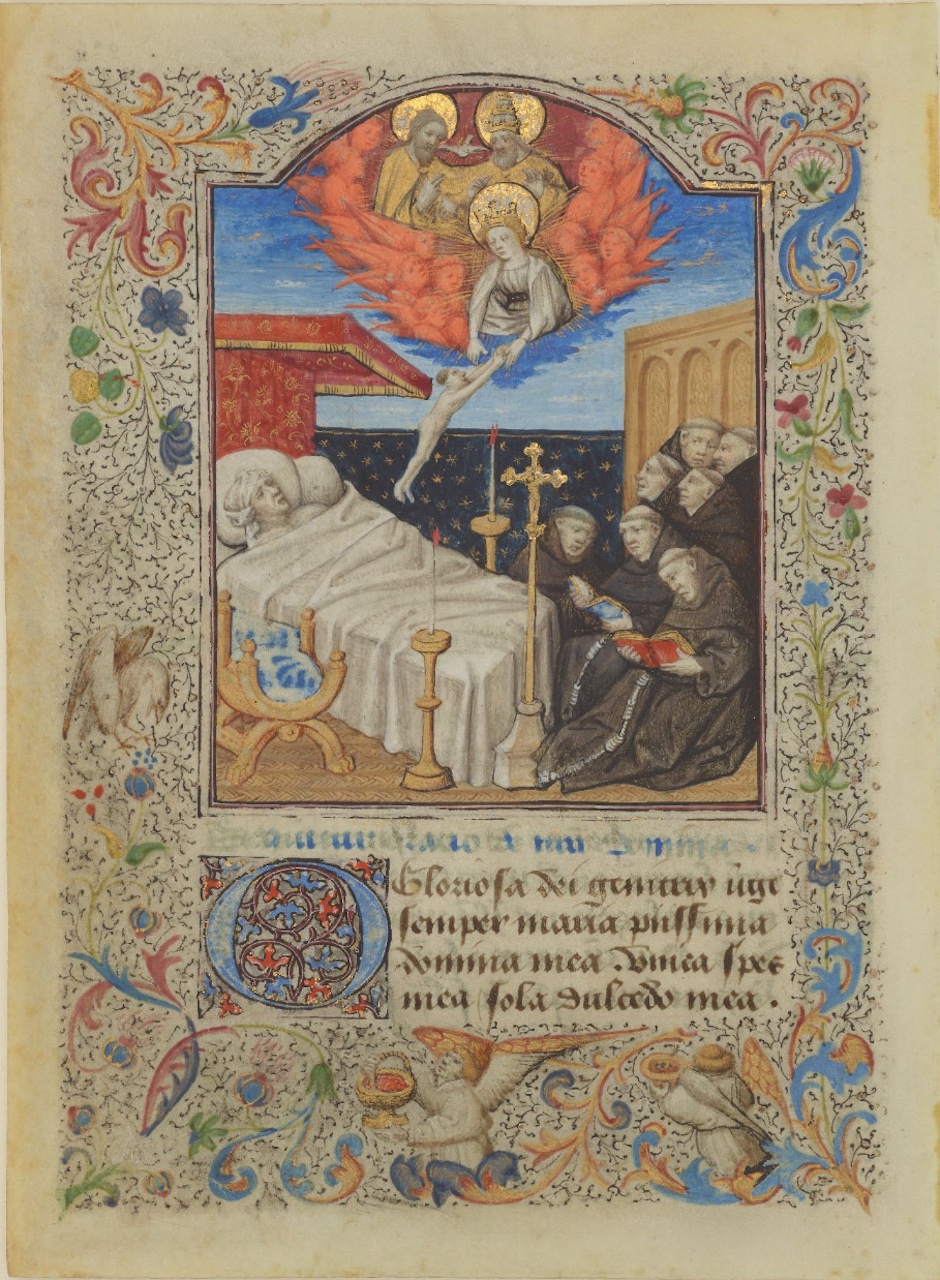 O Gloriosa dei genitrix uirgo
semper maria piissima
domina mea . vnica spes
mea sola dulcedo mea .